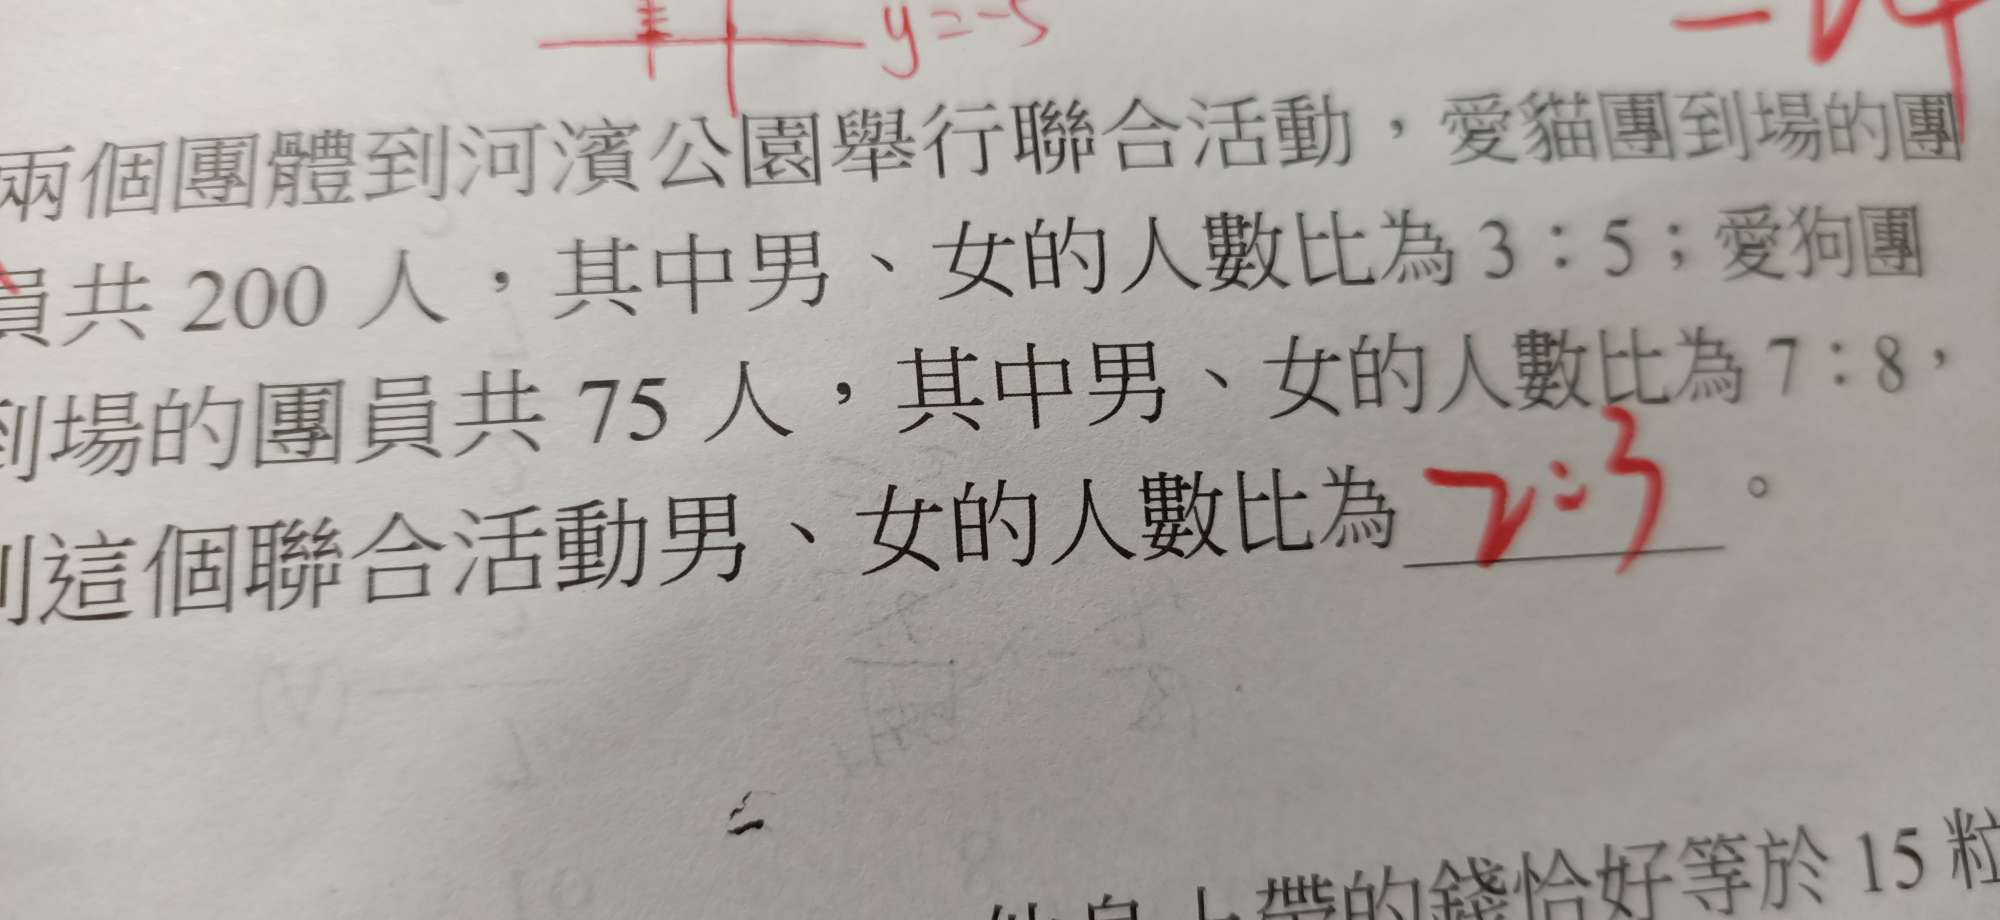 y=-5
兩個團體到河濱公園舉行聯合活動，愛貓團到場的團
員共 200 人，其中男、女的人數比為 3：5；愛狗團
到場的團員共 75 人，其中男、女的人數比為 7：8，
則這個聯合活動男、女的人數比為 2:3 。
他身上帶的錢恰好等於 15 粒